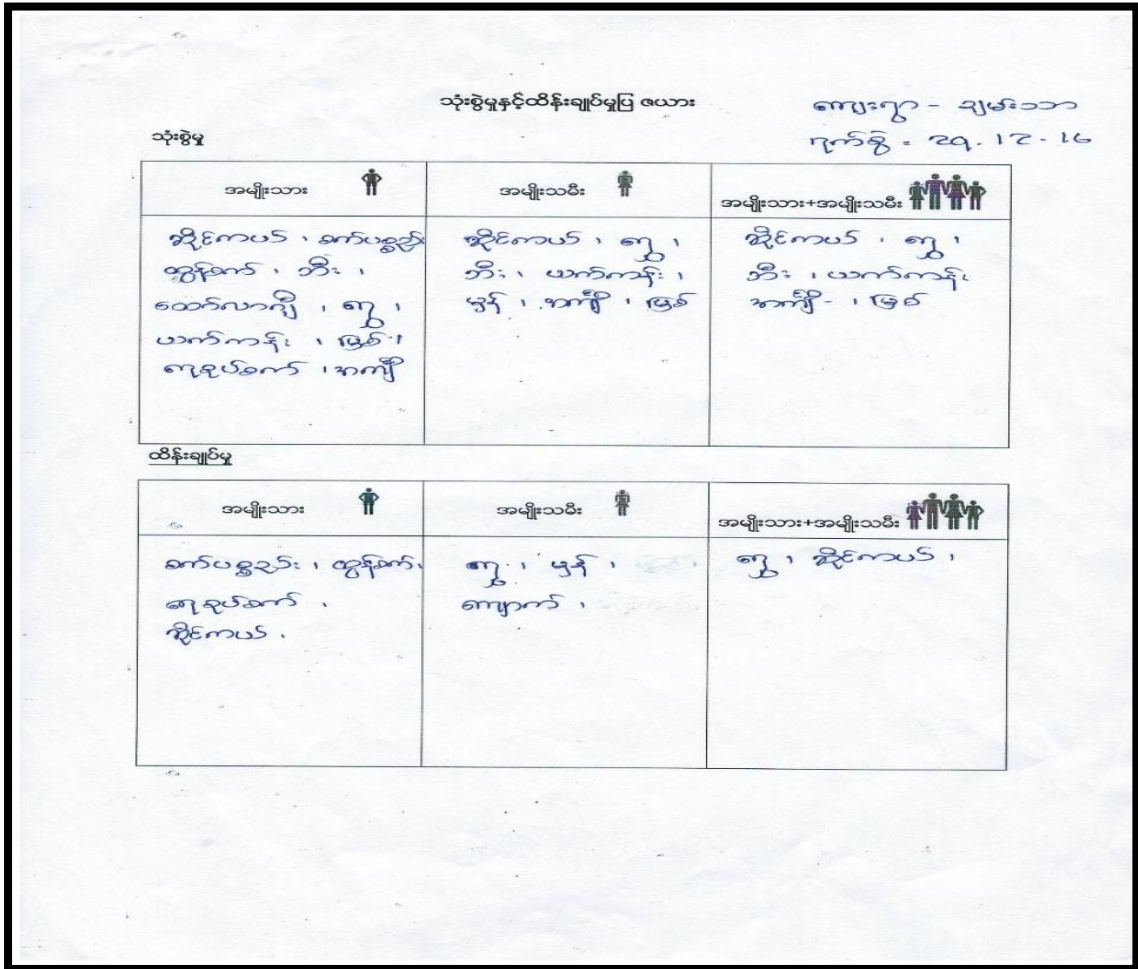 သုံးစွဲမှုနှင့်ထိန်းချုပ်မှုပြ ဇယား
ကျေးရွာ - ချမ်းသာ
ရက်စွဲ - ၁၅.၁၂.၁၆
သုံးစွဲမှု
အမျိုးသား
အမျိုးသမီး
အမျိုးသား+အမျိုးသမီး
ဆိုင်ကယ် ၊ စက်ပစ္စည်း
ထွန်စက် ၊ ဘီး ၊
ထော်လာဂျီ ၊ ရွှေ ၊
ယက်ကန်း ၊ မြစ် ၊
ရေစုပ်စက် ၊ အင်္ကျီ
ဆိုင်ကယ် ၊ ရွှေ ၊
ဘီး ၊ ယက်ကန်း ၊
မှန် ၊ အင်္ကျီ ၊ မြစ်
ဆိုင်ကယ် ၊ ရွှေ ၊
ဘီး ၊ ယက်ကန်း
အင်္ကျီ - ၊ မြစ်
ထိန်းချုပ်မှု
အမျိုးသား
အမျိုးသမီး
အမျိုးသား+အမျိုးသမီး
စက်ပစ္စည်း ၊ ထွန်စက် ၊
ရေစုပ်စက် ၊
ဆိုင်ကယ် ၊
ရွှေ ၊ မှန် ၊
ကျောက် ၊
ရွှေ ၊ ဆိုင်ကယ် ၊